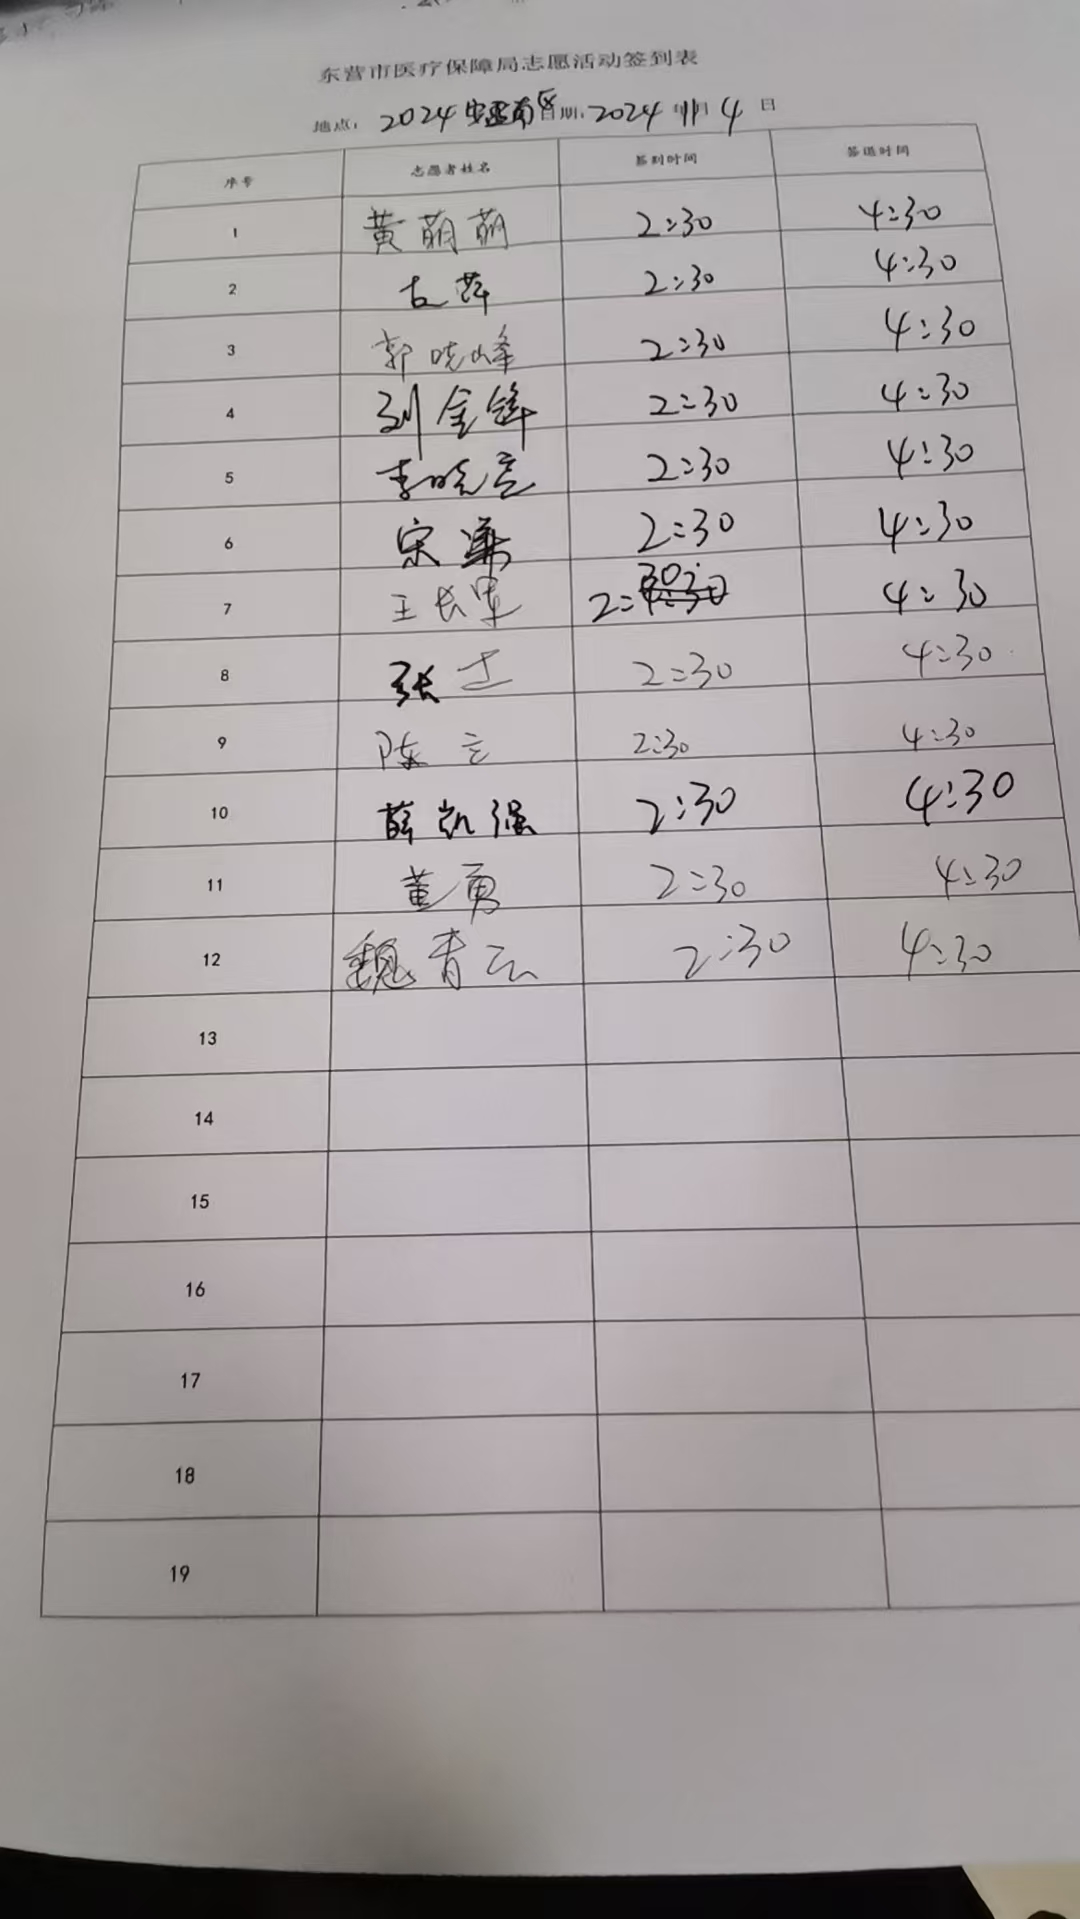 东营市医疗保障局志愿活动签到表
地点: 2024 南区 日期: 2024 年 11 月 4 日
序号 志愿者姓名 签到时间 签退时间
1 黄萌萌 2:30 4:30
2 2:30 4:30
3 郭晓峰 2:30 4:30
4 刘金锋 2:30 4:30
5 李晓亮 2:30 4:30
6 宋 2:30 4:30
7 王长军 2:30 4:30
8 张 2:30 4:30
9 陈 2:30 4:30
10 薛凯强 2:30 4:30
11 董勇 2:30 4:30
12 魏青云 2:30 4:30
13
14
15
16
17
18
19